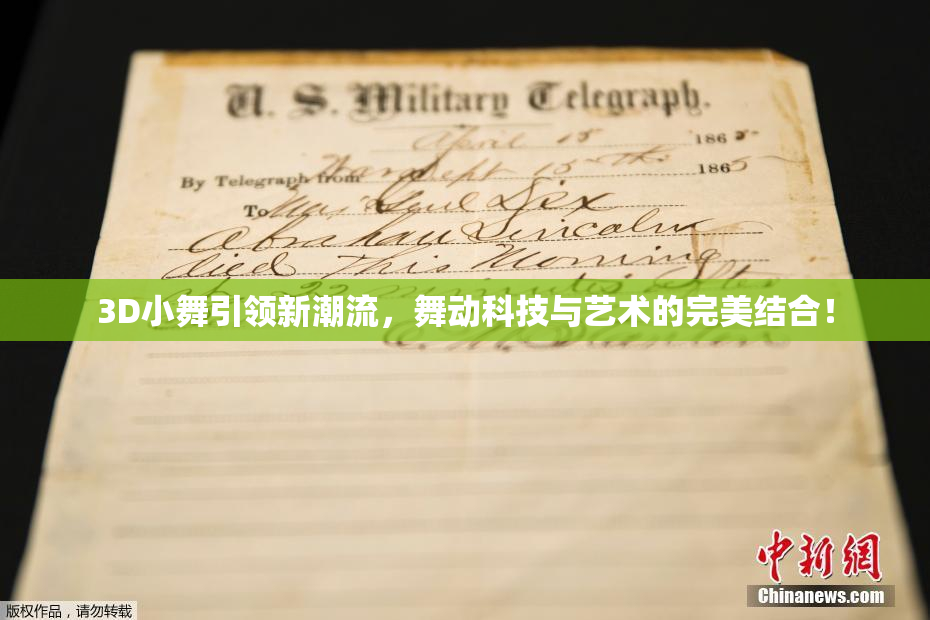 U. S. Military Telegraph.
April 15 1865
By Telegraph from War Dept 15th 1865
To Maj Genl Dix
Abraham Lincoln
died This Morning
at 22 minutes after
3D小舞引领新潮流，舞动科技与艺术的完美结合！
E. M. Stanton
中新网
Chinanews.com
版权作品，请勿转载